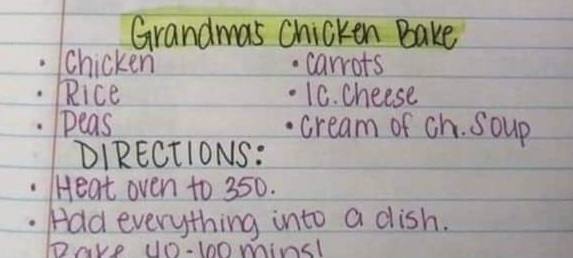 Grandmas Chicken Bake
• Chicken • Carrots
• Rice • 1c. Cheese
• Peas • Cream of Ch. Soup
DIRECTIONS:
• Heat oven to 350.
• Add everything into a dish.
Bake 40-60 mins!